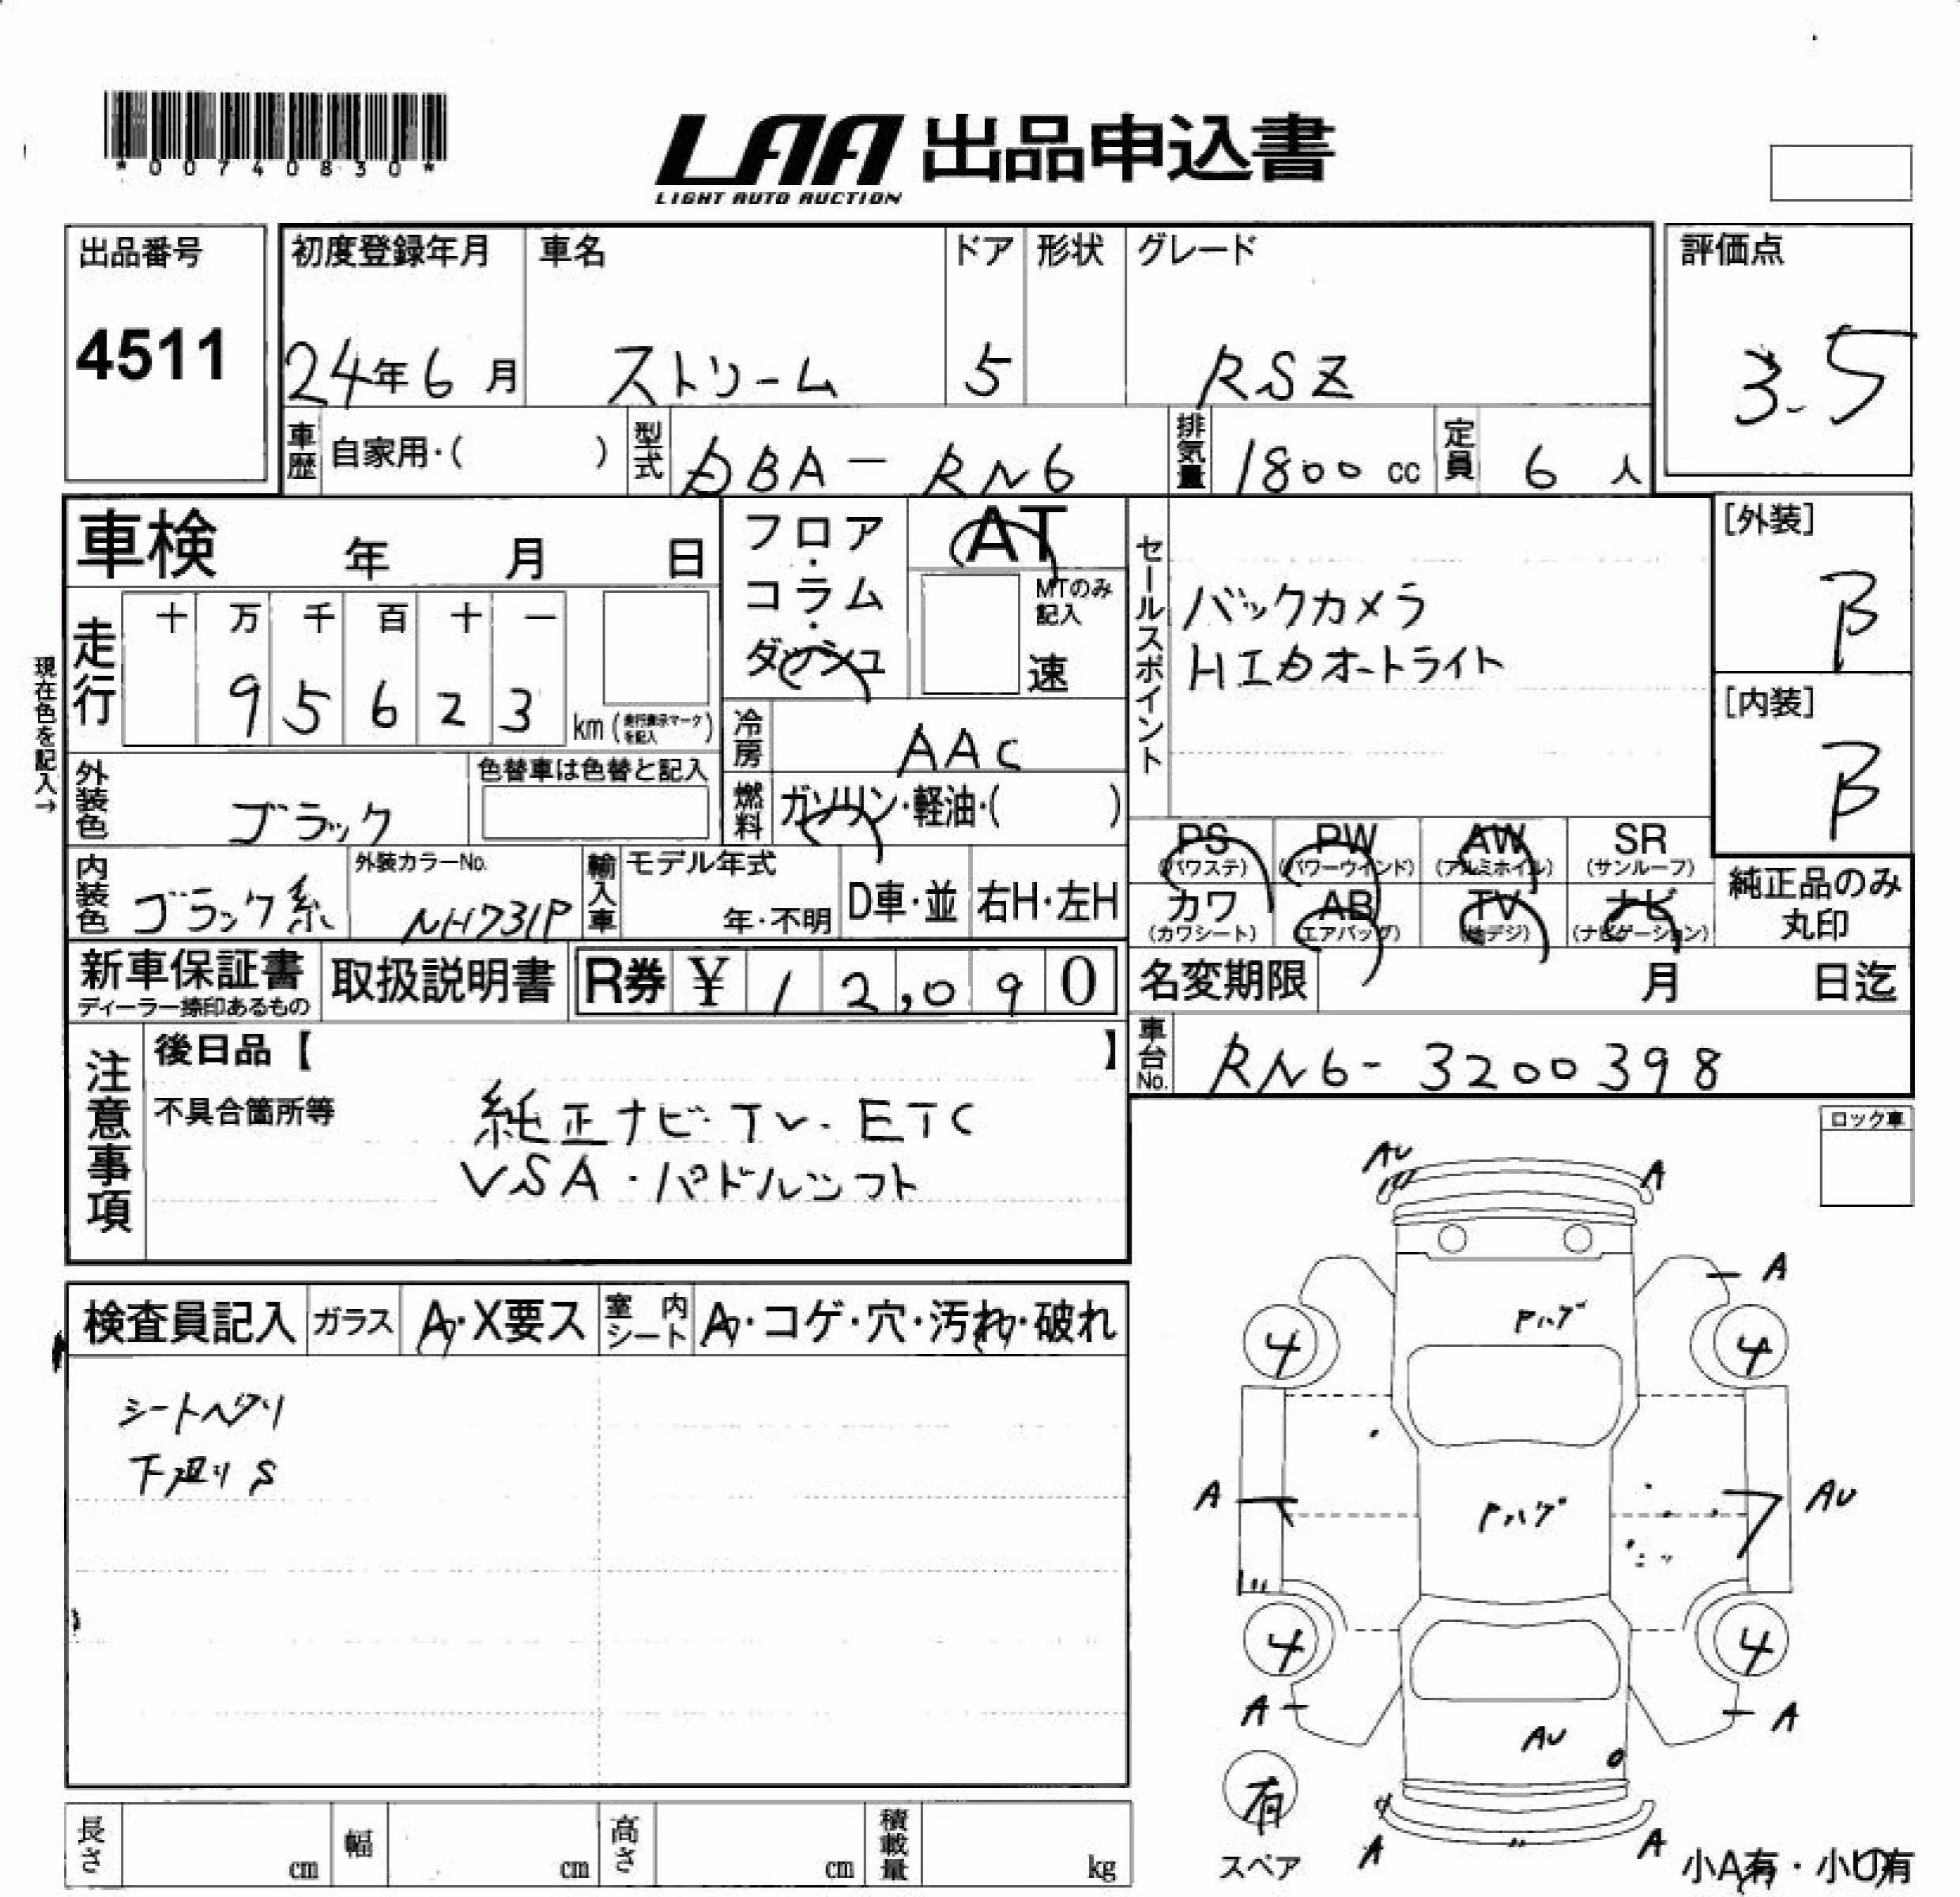 *00740830*
LAA 出品申込書
LIGHT AUTO AUCTION
出品番号 4511
初度登録年月 24年6月
車名 ストリーム
ドア 5
形状
グレード RSZ
評価点 3.5
車歴 自家用・( )
型式 DBA-RN6
排気量 1800 cc
定員 6人
車検 年 月 日
フロア・コラム・ダッシュ
AT
MTのみ記入
速
セールスポイント
バックカメラ
HIDオートライト
[外装] B
[内装] B
現在色を記入→
走行 十 万 千 百 十 一
9 5 6 2 3 km (走行表示マークを記入)
冷房 AAC
外装色 ブラック
色替車は色替と記入
燃料 ガソリン・軽油・( )
PS (パワステ) PW (パワーウインド) AW (アルミホイル) SR (サンルーフ)
カワ (カワシート) AB (エアバッグ) TV (地デジ) ナビ (ナビゲーション)
純正品のみ丸印
内装色 ブラック系
外装カラーNo. NH731P
輸入車 モデル年式 年・不明 D車・並 右H・左H
新車保証書 ディーラー捺印あるもの
取扱説明書
R券 ¥ 12,090
名変期限 月 日迄
車台No. RN6-3200398
注意事項
後日品【 】
不具合箇所等
純正ナビ・TV・ETC
VSA・パドルシフト
ロック車
検査員記入 ガラス A・X要ス 室内シート A・コゲ・穴・汚れ・破れ
シートヘタリ
下廻りS
AU A
A
Pハゲ
4 4
A Pハゲ AU
4 4
A A
AU
有
スペア
A A
小A有・小U有
長さ cm 幅 cm 高さ cm 積載量 kg